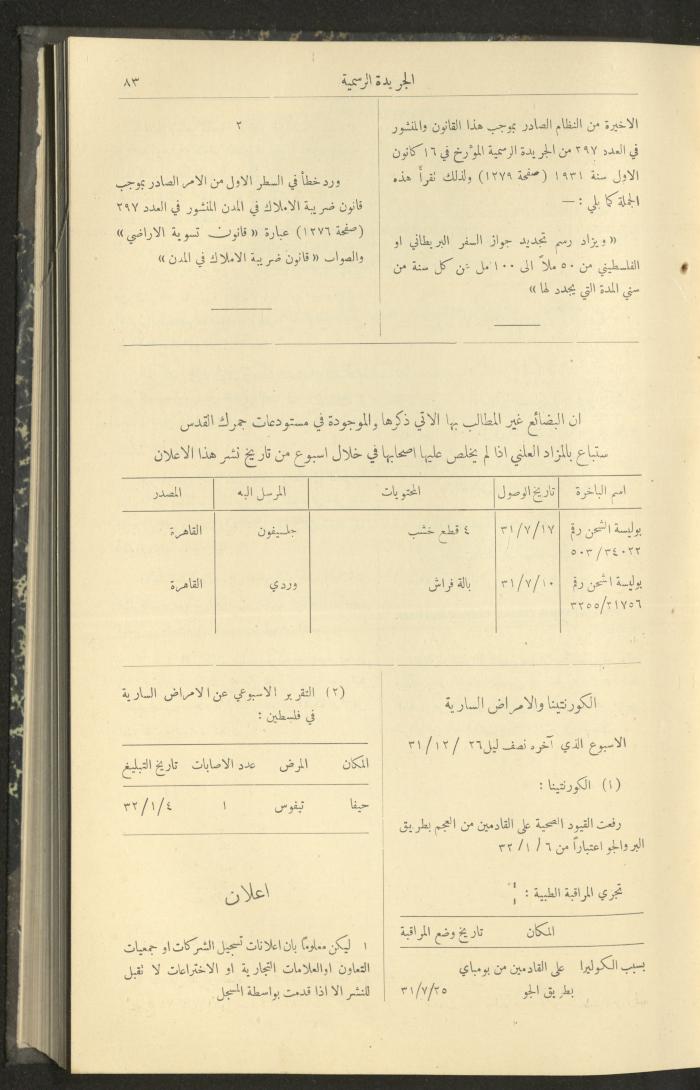 الجريدة الرسمية
٨٣
الاخيرة من النظام الصادر بموجب هذا القانون والمنشور
في العدد ٢٩٧ من الجريدة الرسمية المؤرخ في ١٦ كانون
الاول سنة ١٩٣١ (صفحة ١٢٧٩) ولذلك تقرأ هذه
الجملة كما يلي : —
« ويزاد رسم تجديد جواز السفر البريطاني او
الفلسطيني من ٥٠ ملاً الى ١٠٠ مل عن كل سنة من
سني المدة التي يجدد لها »
٢
ورد خطأ في السطر الاول من الامر الصادر بموجب
قانون ضريبة الاملاك في المدن المنشور في العدد ٢٩٧
(صفحة ١٢٧٦) عبارة « قانون تسوية الاراضي »
والصواب « قانون ضريبة الاملاك في المدن »
ان البضائع غير المطالب بها الاتي ذكرها والموجودة في مستودعات جمرك القدس
ستباع بالمزاد العلني اذا لم يخلص عليها اصحابها في خلال اسبوع من تاريخ نشر هذا الاعلان
اسم الباخرة تاريخ الوصول المحتويات المرسل اليه المصدر
بوليسة الشحن رقم ٣١/٧/١٧ ٤ قطع خشب جلسيفون القاهرة
٥٠٣/٣٤٠٢٢
بوليسة اشحن رقم ٣١/٧/١٠ بالة فراش وردي القاهرة
٣٢٥٥/٢١٧٥٦
الكورنتينا والامراض السارية
الاسبوع الذي آخره نصف ليل ٢٦ /١٢/ ٣١
(١) الكورنتينا :
رفعت القيود الصحية على القادمين من العجم بطريق
البر والجو اعتباراً من ٦ /١/ ٣٢
تجري المراقبة الطبية :
المكان تاريخ وضع المراقبة
بسبب الكوليرا على القادمين من بومباي
بطريق الجو ٣١/٧/٢٥
(٢) التقرير الاسبوعي عن الامراض السارية
في فلسطين :
المكان المرض عدد الاصابات تاريخ التبليغ
حيفا تيفوس ١ ٣٢/١/٤
اعلان
١ ليكن معلوماً بان اعلانات تسجيل الشركات او جمعيات
التعاون او العلامات التجارية او الاختراعات لا تقبل
للنشر الا اذا قدمت بواسطة المسجل